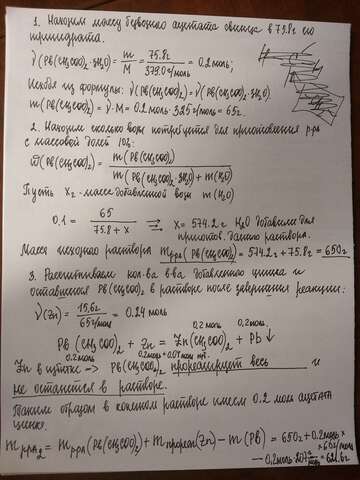 1. Находим массу безводного ацетата свинца в 75.8 г его
тригидрата.
ν(Pb(CH₃COO)₂·3H₂O) = m/M = 75.8г/379.0г/моль = 0.2 моль;
Исходя из формулы: ν(Pb(CH₃COO)₂) = ν(Pb(CH₃COO)₂·3H₂O).
m(Pb(CH₃COO)₂) = ν·M = 0.2 моль·325г/моль = 65г.
2. Находим сколько воды потребуется для приготовления р-ра
с массовой долей 10%:
ω(Pb(CH₃COO)₂) = m(Pb(CH₃COO)₂)/m(Pb(CH₃COO)₂·3H₂O)+m(H₂O)
Пусть x г - масса добавленной воды m(H₂O)
0.1 = 65/75.8+x ⇒ x = 574.2 г H₂O добавили для
приготов. данного раствора.
Масса исходного раствора m р-ра(Pb(CH₃COO)₂) = 574.2г+75.8г = 650г
3. Рассчитываем кол-ва в-ва добавленного цинка и
оставшегося Pb(CH₃COO)₂ в растворе после завершения реакции:
ν(Zn) = 15,6г/65г/моль = 0.24 моль
0.2 моль 0.2 моль
Pb(CH₃COO)₂ + Zn = Zn(CH₃COO)₂ + Pb↓
0.2 моль 0.2 моль+0.04 моль
Zn в избытке → Pb(CH₃COO)₂ прореагирует весь и
не останется в растворе.
Таким образом в конечном растворе имеем 0.2 моль ацетата
цинка.
m р-ра₂ = m р-ра(Pb(CH₃COO)₂) + m прореаг(Zn) - m(Pb) = 650г + 0.2 моль ×
× 65г/моль
- 0.2 моль·207г/моль = 621.6г